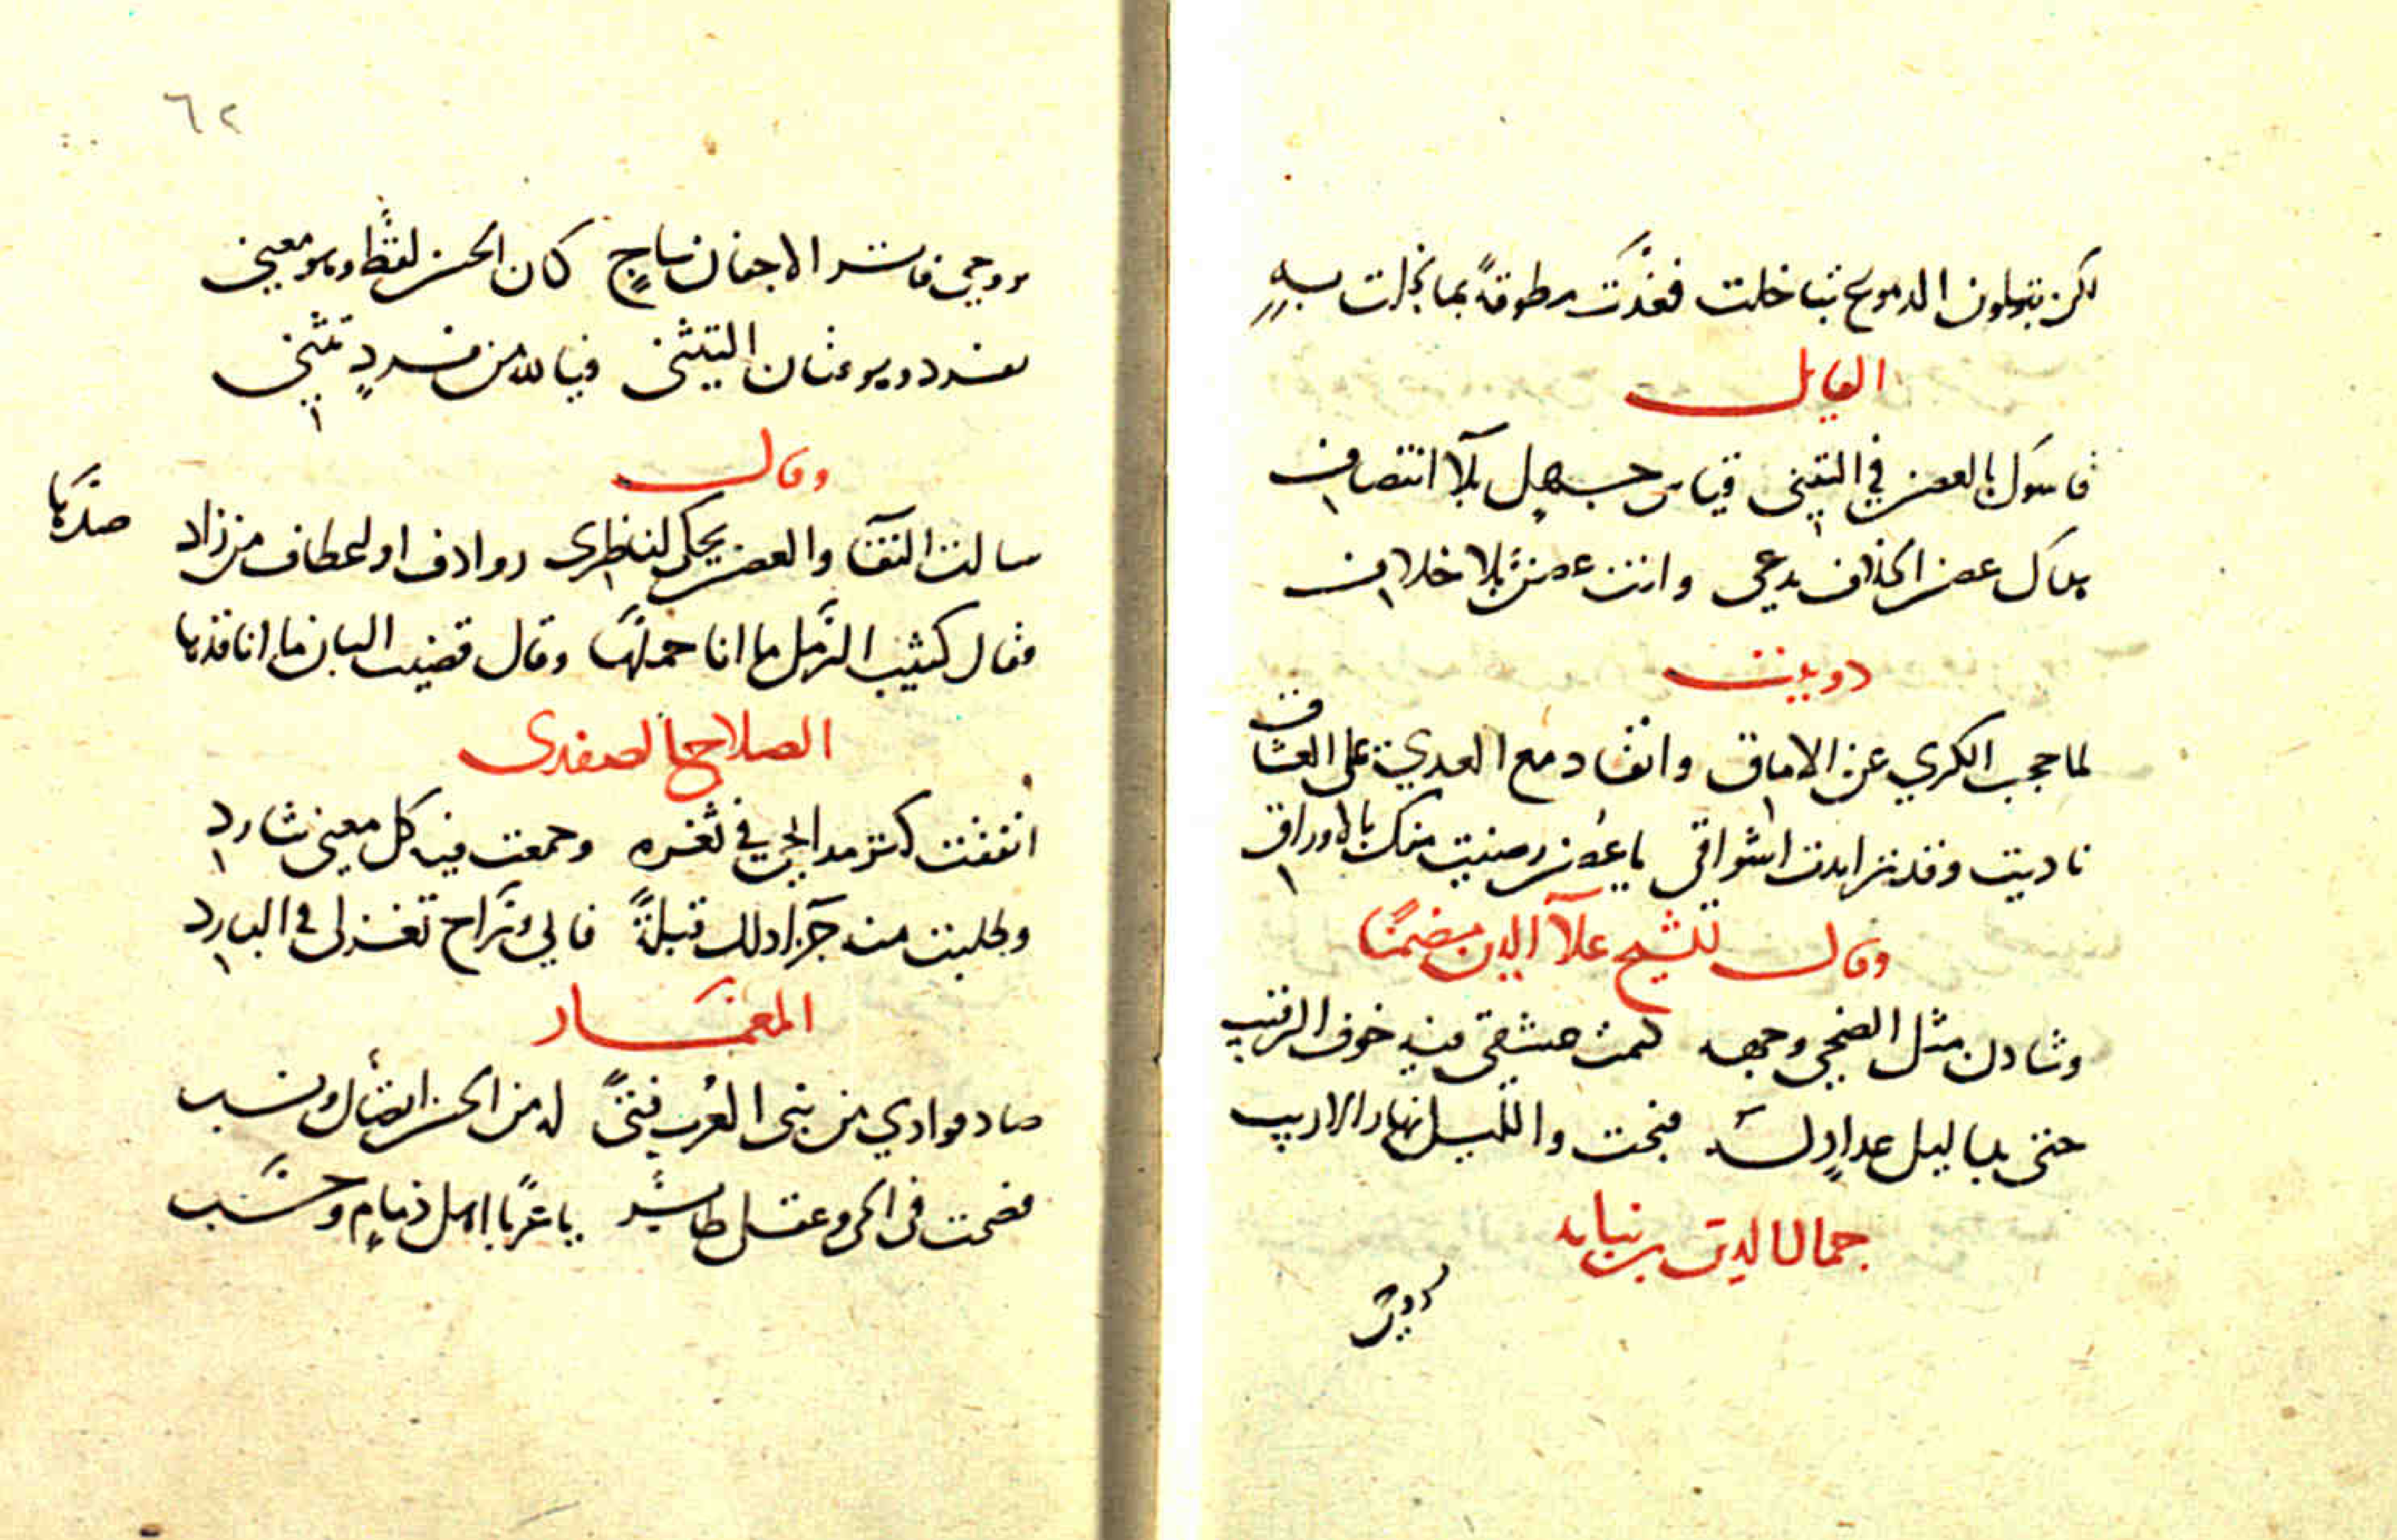 لكن بتلون الدموع تباخلت فغدت مطوقةً بما بخلت به
القايل
قاسوك بالغصن في التثني قياس جهل بلا انتصاف
هذاك غصن الخلاف يدعى وانت غصن بلا خلاف
دوبيت
لما حجب الكرى عن الاماق وانقاد مع العدى على العشاق
ناديت وقد تزايدت اشواقي يا غصن رضيت منك بالاوراق
وقال للشيخ علآ الدين مضمنًا
وشادن مثل الضحى وجهه كتمت عشقي فيه خوف الرقيب
حتى بدا ليل عذارٍ له فبحت والليل نهار الاريب
جمال الدين بن نباته
بروحي
٦٢
بروحي فاتر الاجفان ساجٍ كان الحسن لفظ وهو معنى
تفرد وهو فتان التثني فيا لله من فردٍ تثنى
وقال
سالت النقا والغصن يحكي لناظري روادف او اعطاف من زاد صدها
فقال كثيب الرمل ما انا حملها وقال قضيب البان ما انا قدها
الصلاح الصفدى
انفقت كنز مدايحي في ثغره وجمعت فيه كل معنى شارد
وطلبت منه جزآ ذلك قبلةً فابى وراح تغزلي في البارد
المعمار
صاد فوادي من بنى العُرب فتىً له من الحسن ايضًا ونسب
فصحت في الحي وعقلي طايش يا عُربًا اهل ذمامٍ وحسب